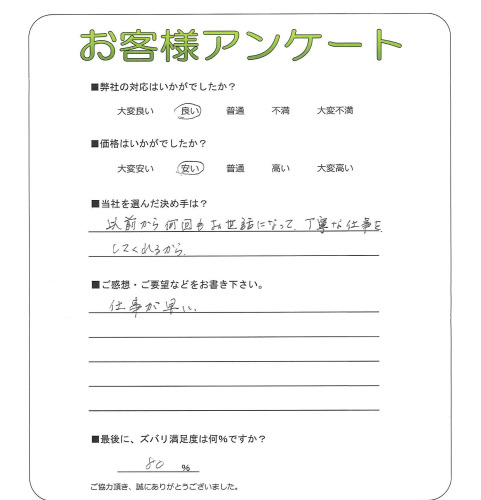 お客様アンケート
■弊社の対応はいかがでしたか？
大変良い 良い 普通 不満 大変不満
■価格はいかがでしたか？
大変安い 安い 普通 高い 大変高い
■当社を選んだ決め手は？
以前から何回もお世話になって、丁寧な仕事を
してくれるから。
■ご感想・ご要望などをお書き下さい。
仕事が早い。
■最後に、ズバリ満足度は何%ですか？
80 %
ご協力頂き、誠にありがとうございました。